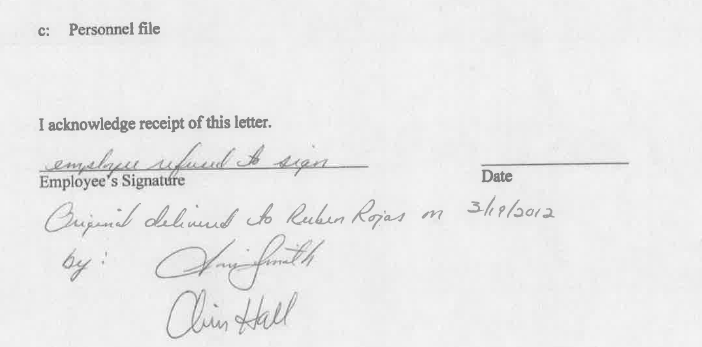 c: Personnel file
I acknowledge receipt of this letter.
employee refused to sign
Employee's Signature Date
Original delivered to Ruben Rojas on 3/19/2012
by: Smith
Hall